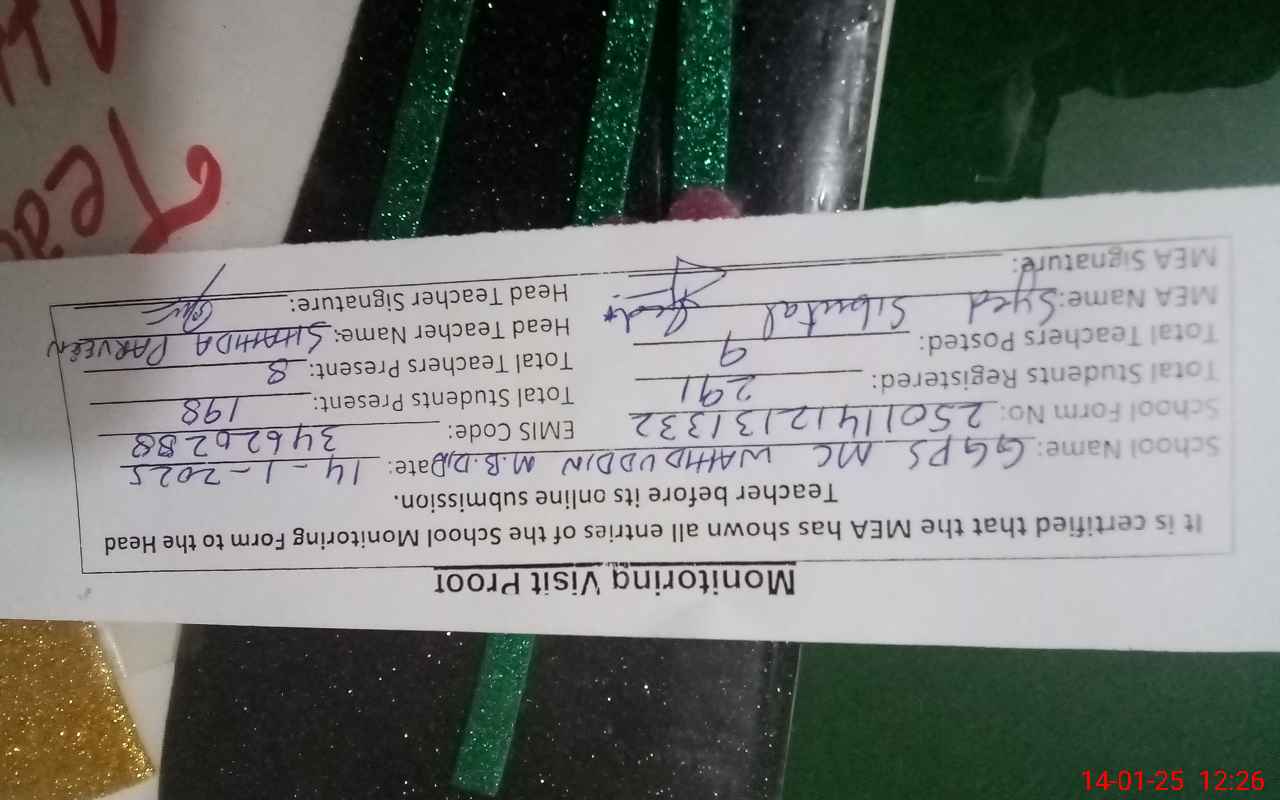 Monitoring Visit Proof
It is certified that the MEA has shown all entries of the School Monitoring Form to the Head
Teacher before its online submission.
School Name: GGPS MC WAHIDUDDIN M.B.DIN Date: 14-1-2025
School Form No: 25011412131332 EMIS Code: 34620288
Total Students Registered: 291 Total Students Present: 198
Total Teachers Posted: 9 Total Teachers Present: 8
MEA Name: Syed Sibtutal Head Teacher Name: SHAHIDA PARVEEN
MEA Signature: Head Teacher Signature:
Tea
14-01-25 12:26